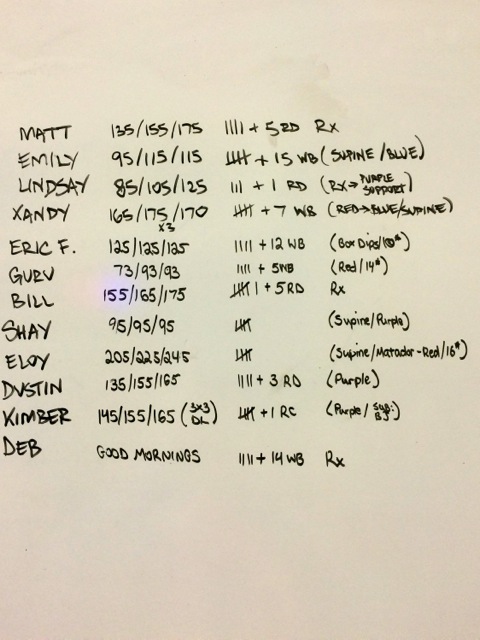 MATT 135/155/175 |||| + 5 RD Rx
EMILY 95/115/115 卌 + 15 WB (SUPINE/BLUE)
LINDSAY 85/105/125 ||| + 1 RD (RX→PURPLE SUPPORT)
XANDY 165/175/170 x3 卌 + 7 WB (RED→BLUE/SUPINE)
ERIC F. 125/125/125 |||| + 12 WB (Box Dips/10#)
GURU 73/93/93 |||| + 5WB (Red/14#)
BILL 155/165/175 卌 | + 5 RD Rx
SHAY 95/95/95 卌 (Supine/Purple)
ELOY 205/225/245 卌 (Supine/Matador-Red/16#)
DUSTIN 135/155/165 |||| + 3 RD (Purple)
KIMBER 145/155/165 (3x3 DL) 卌 + 1 RC (Purple/Sup. BJ)
DEB GOOD MORNINGS |||| + 14 WB Rx